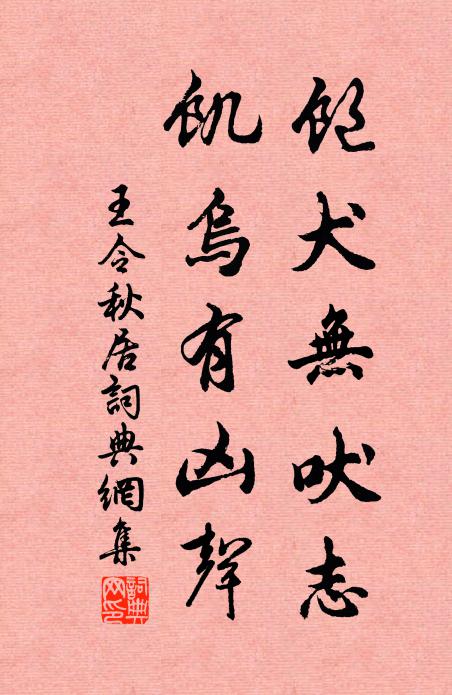 飽犬無吠志
飢烏有凶聲
王令秋居詞典網集
詞典網印